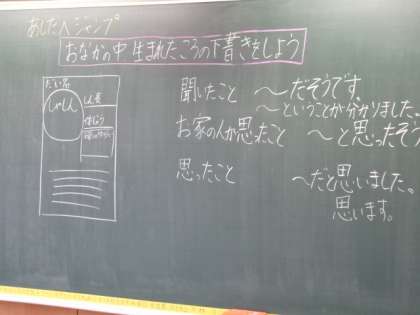 あしたへジャンプ
おなかの中 生まれたころの下書きをしよう
だい名
しゃしん
しん長
体じゅう
聞いたこと　～だそうです。
～ということが分かりました。
お家の人が思ったこと　～と思ったそう
思ったこと　～だと思いました。
思います。